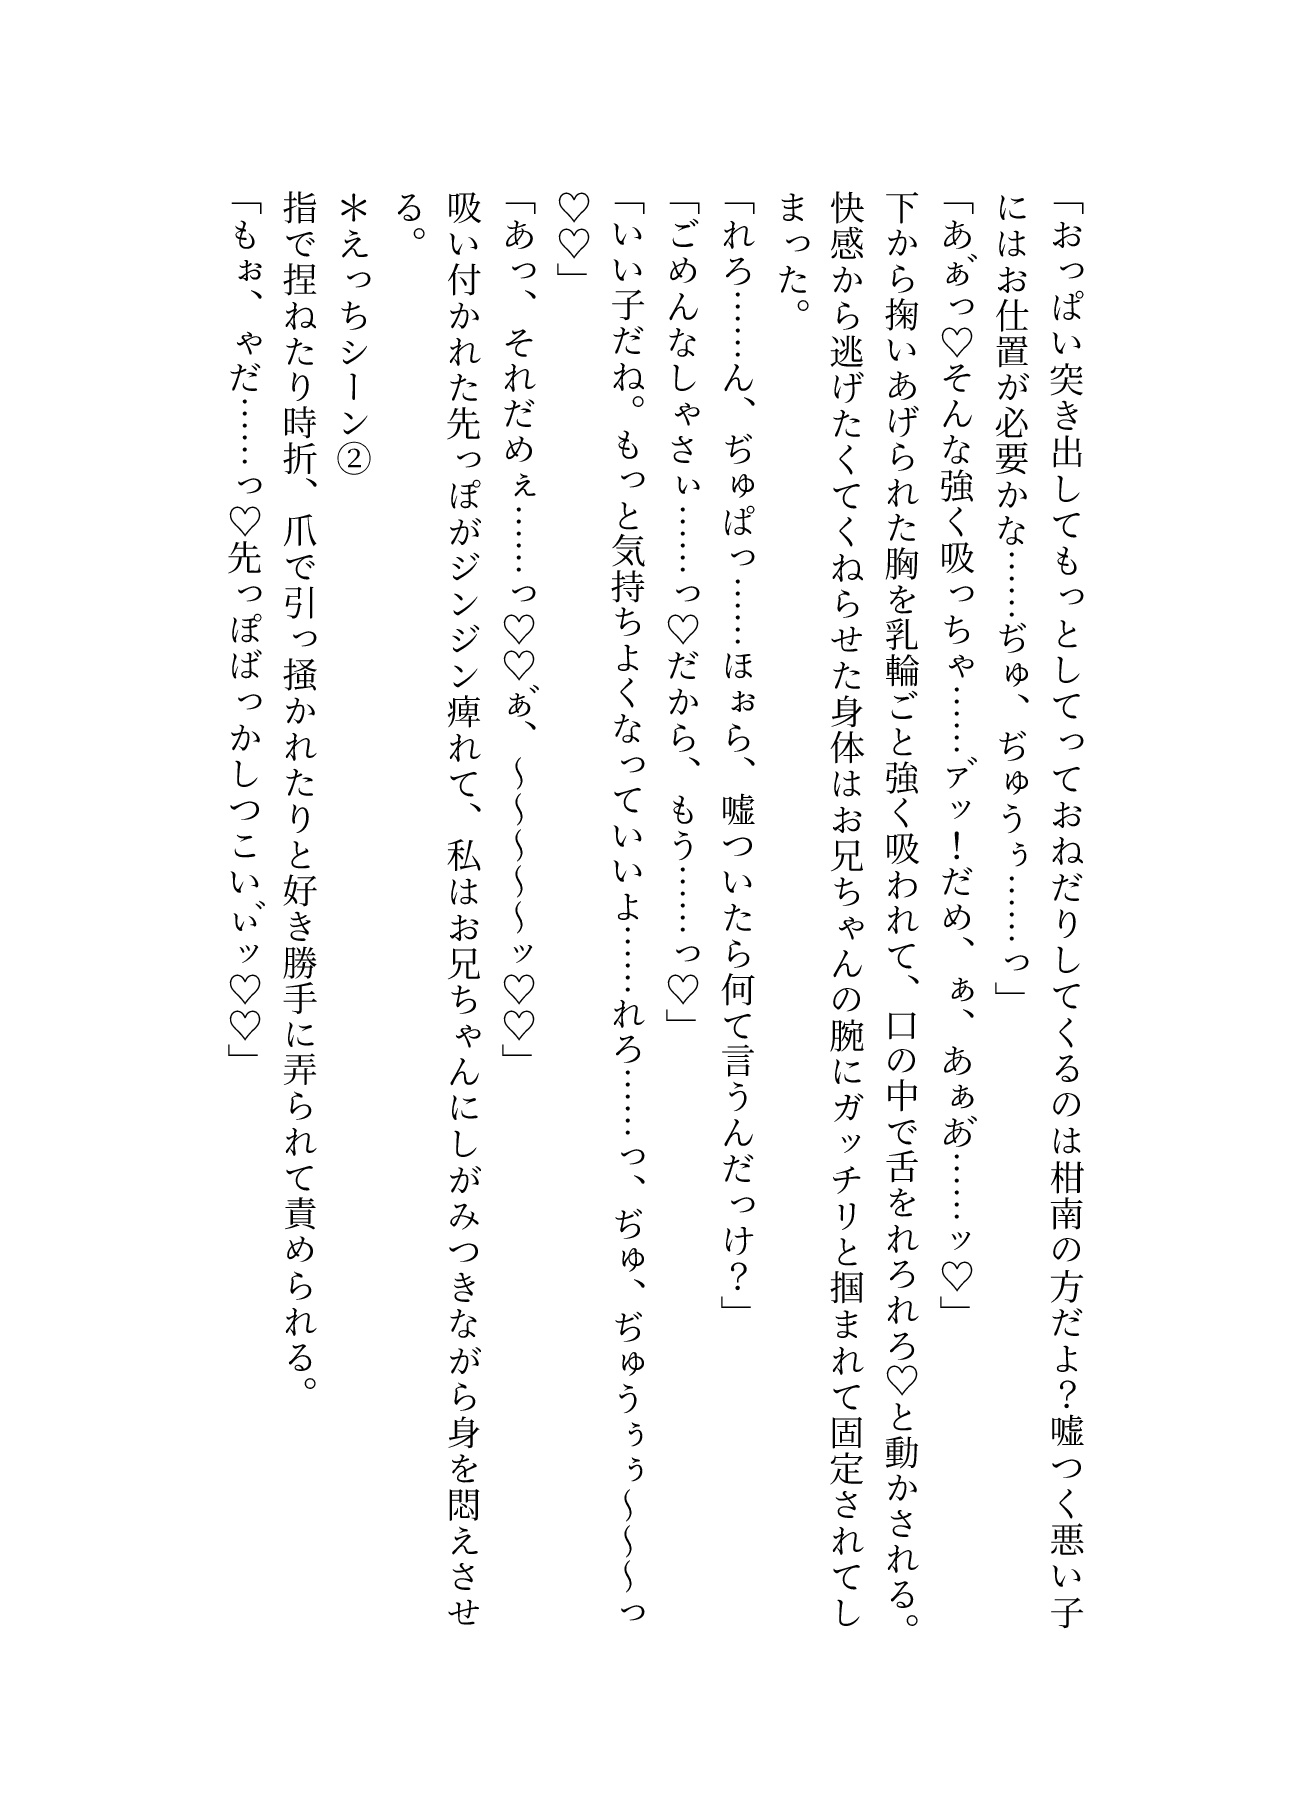 「おっぱい突き出してもっとしてっておねだりしてくるのは柑南の方だよ？嘘つく悪い子
にはお仕置が必要かな……ぢゅ、ぢゅうぅ……っ」
「あぁ゙っ♡そんな強く吸っちゃ……ァ゙ッ！だめ、ぁ、あぁあ゙……ッ♡」
下から掬いあげられた胸を乳輪ごと強く吸われて、口の中で舌をれろれろ♡と動かされる。
快感から逃げたくてくねらせた身体はお兄ちゃんの腕にガッチリと掴まれて固定されてし
まった。
「れろ……ん、ぢゅぱっ……ほぉら、嘘ついたら何て言うんだっけ？」
「ごめんなしゃさぃ……っ♡だから、もう……っ♡」
「いい子だね。もっと気持ちよくなっていいよ……れろ……っ、ぢゅ、ぢゅうぅぅ～～～っ
♡♡」
「あっ、それだめぇ……っ♡♡ぁ゙、～～～～～ッ♡♡」
吸い付かれた先っぽがジンジン痺れて、私はお兄ちゃんにしがみつきながら身を悶えさせ
る。
＊えっちシーン②
指で捏ねたり時折、爪で引っ掻かれたりと好き勝手に弄られて責められる。
「もぉ、ゃだ……っ♡先っぽばっかしつこいぃ゙ッ♡♡」